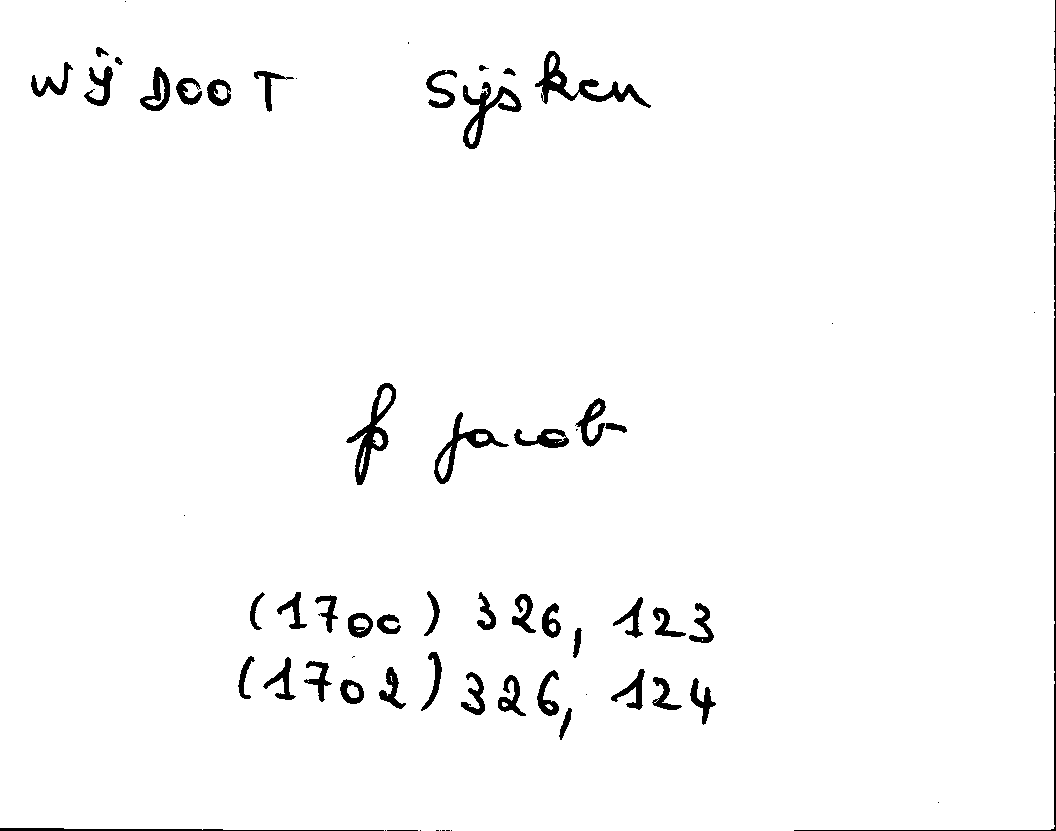 WŸDOOT Sijsken
fs Jacob
(1700) 326, 123
(1702) 326, 124